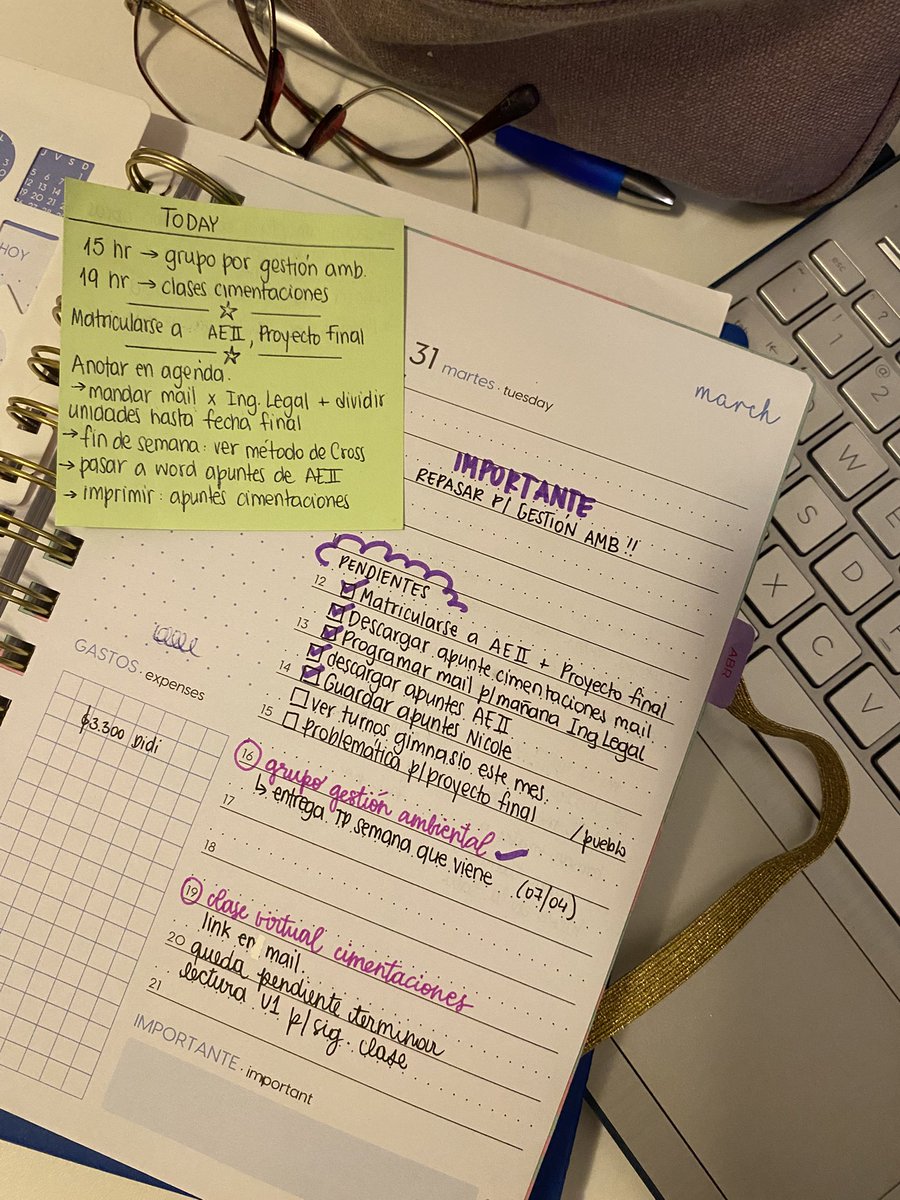 TODAY
15 hr → grupo por gestión amb.
19 hr → clases cimentaciones
Matricularse a AEII, Proyecto final
Anotar en agenda:
→ mandar mail x Ing. Legal + dividir
unidades hasta fecha final
→ fin de semana: ver método de Cross
→ pasar a word apuntes de AEII
→ imprimir: apuntes cimentaciones
HOY
J V S D
31 martes · tuesday
march
IMPORTANTE
REPASAR P/ GESTIÓN AMB !!
PENDIENTES
12 Matricularse a AEII + Proyecto final
Descargar apunte cimentaciones mail
13 Programar mail p/mañana Ing Legal
descargar apuntes AEII
14 Guardar apuntes Nicole
ver turnos gimnasio este mes.
15 problemática p/proyecto final
/pueblo
16 grupo gestión ambiental ✓
↳ entrega TP semana que viene (07/04)
17
18
19 clase virtual cimentaciones
link en mail.
20 queda pendiente terminar
lectura U1 p/sig. clase
21
GASTOS · expenses
$3.300 Didi
IMPORTANTE · important
ABR
esc
1
2
@
W
S
D
X
C
V